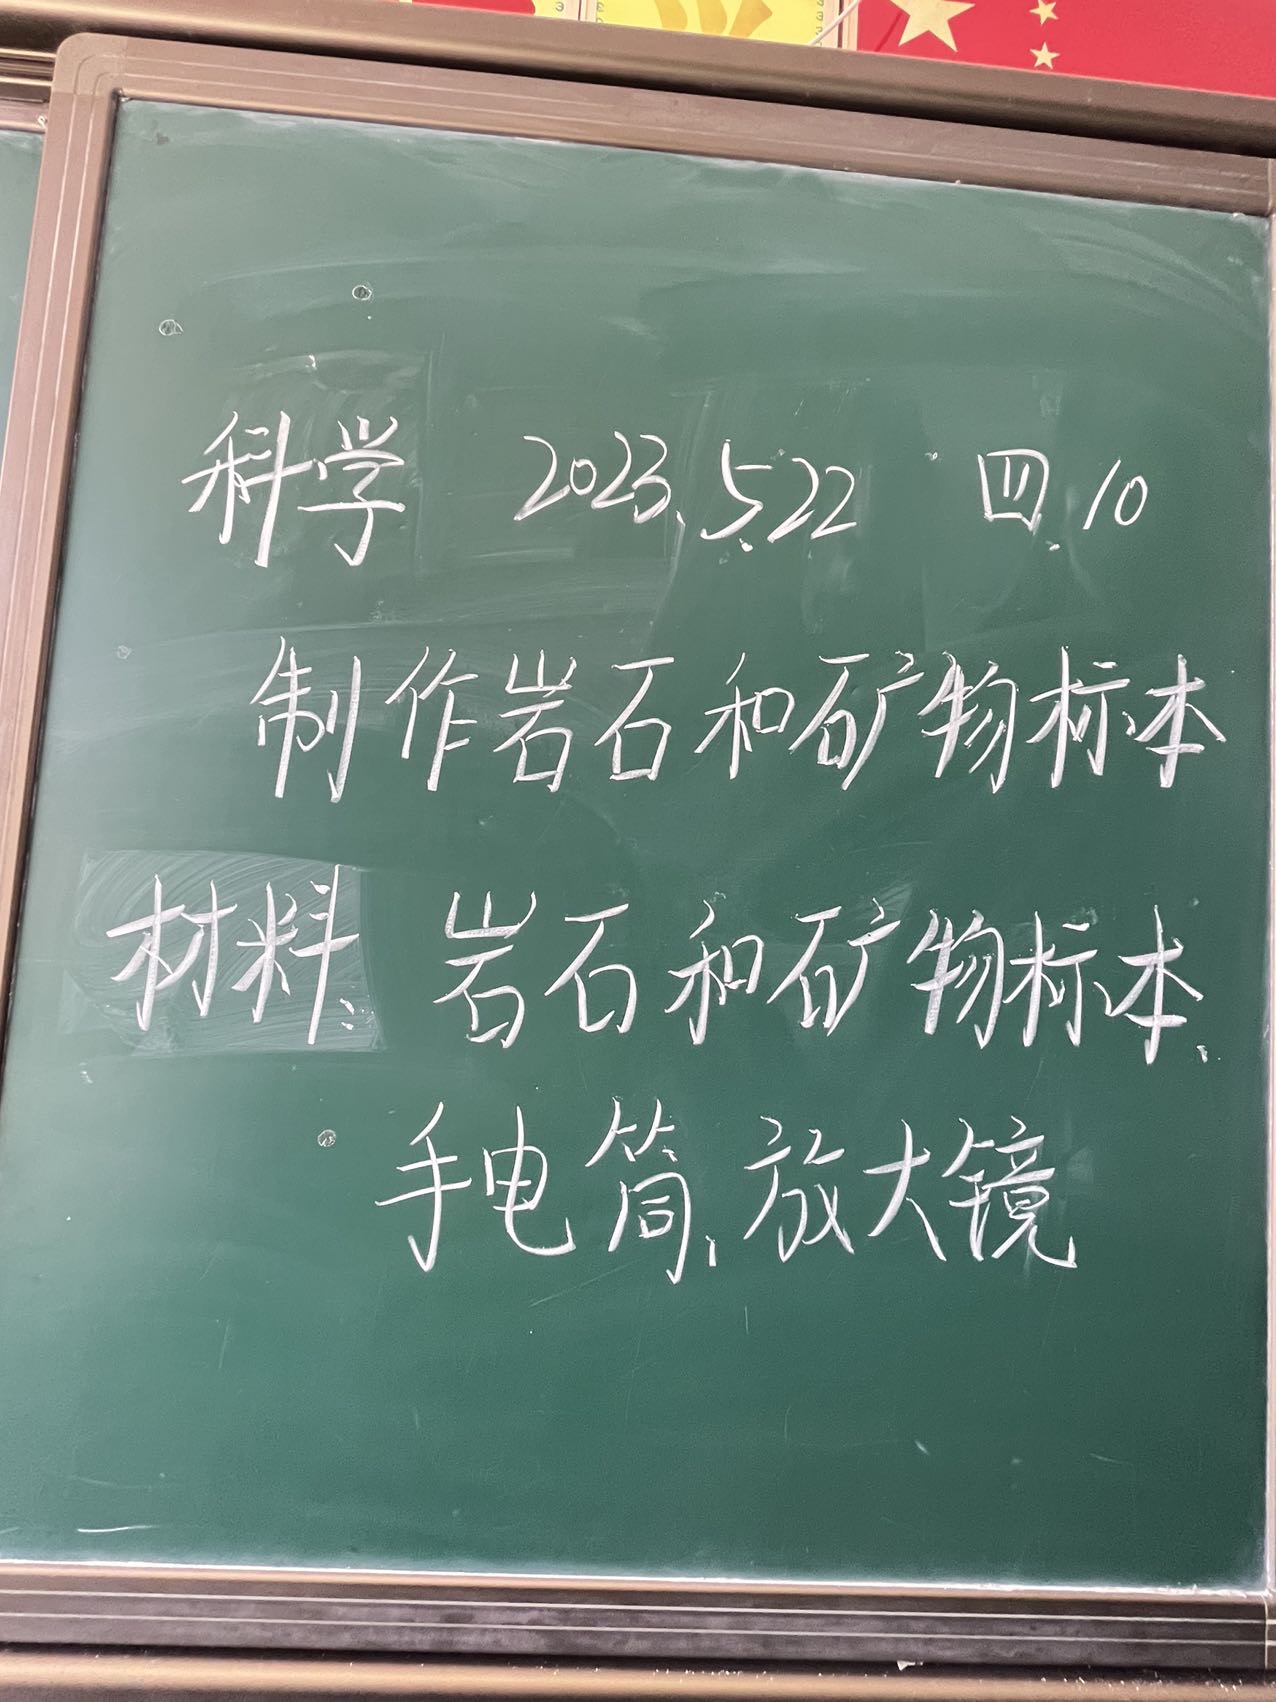 科学 2023.5.22 四.10
制作岩石和矿物标本
材料: 岩石和矿物标本、
手电筒、放大镜